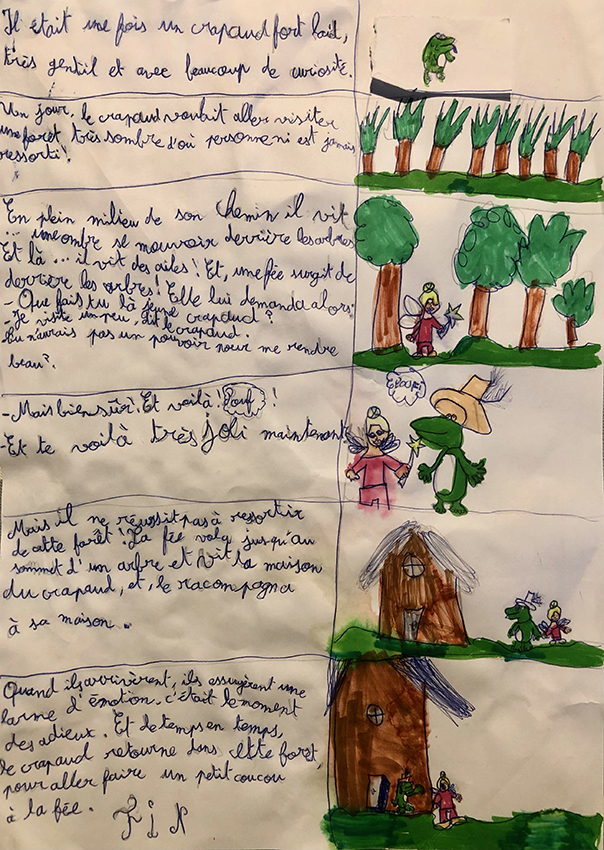 Il était une fois un crapaud fort laid,
très gentil et avec beaucoup de curiosité.
Un jour, le crapaud voulait aller visiter
une forêt très sombre d'où personne ni est jamais
ressorti!
En plein milieu de son chemin il vit
... une ombre se mouvoir derrière les arbres
Et là ... il vit des ailes! Et, une fée surgit de
derrière les arbres! Elle lui demanda alors:
- Que fais tu là jeune crapaud?
- Je visite un peu, dit le crapaud.
Tu n'aurais pas un pouvoir pour me rendre
beau?
- Mais bien sûr! Et voilà! Pouf !
- Et te voilà très joli maintenant
Mais il ne réussit pas à ressortir
de cette forêt! La fée vola jusqu'au
sommet d'un arbre et vit sa maison
du crapaud, et, le racompagna
à sa maison...
Quand ils arrivèrent, ils essuyèrent une
larme d'émotion. c'était le moment
des adieux. Et de temps en temps,
le crapaud retourne dans cette forêt,
pour aller faire un petit coucou
à la fée.
FIN